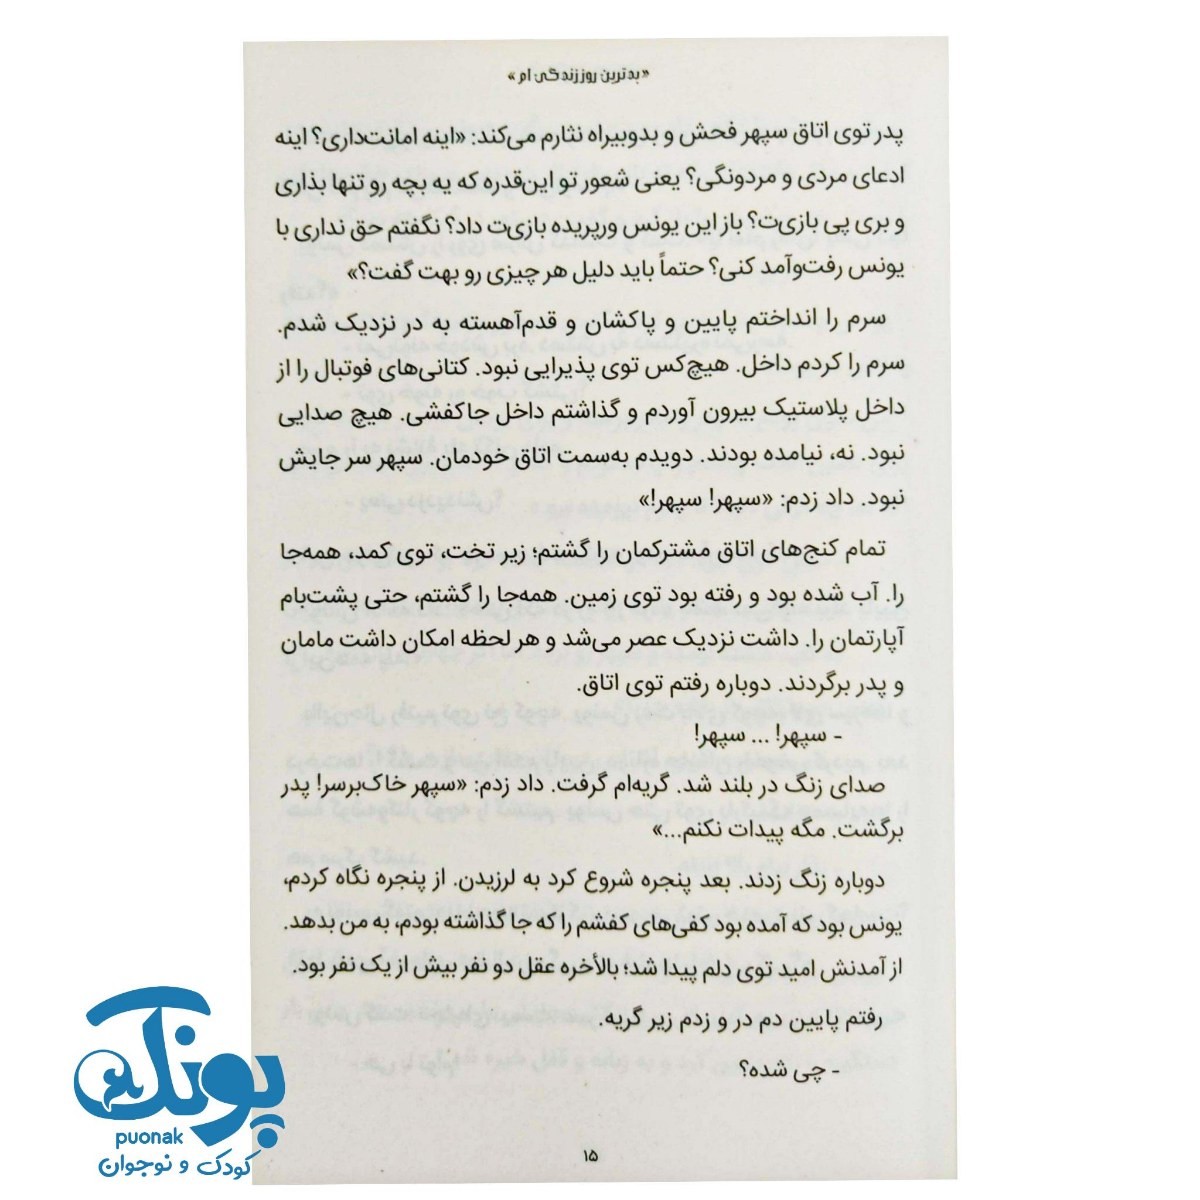 «بدترین روز زندگی ام»
پدر توی اتاق سپهر فحش و بدوبیراه نثارم می‌کند: «اینه امانت‌داری؟ اینه
ادعای مردی و مردونگی؟ یعنی شعور تو این‌قدره که یه بچه رو تنها بذاری
و بری پی بازی‌ت؟ باز این یونس ورپریده بازی‌ت داد؟ نگفتم حق نداری با
یونس رفت‌وآمد کنی؟ حتماً باید دلیل هر چیزی رو بهت گفت؟»
سرم را انداختم پایین و پاکشان و قدم‌آهسته به در نزدیک شدم.
سرم را کردم داخل. هیچ‌کس توی پذیرایی نبود. کتانی‌های فوتبال را از
داخل پلاستیک بیرون آوردم و گذاشتم داخل جاکفشی. هیچ صدایی
نبود. نه، نیامده بودند. دویدم به‌سمت اتاق خودمان. سپهر سر جایش
نبود. داد زدم: «سپهر! سپهر!»
تمام کنج‌های اتاق مشترکمان را گشتم؛ زیر تخت، توی کمد، همه‌جا
را. آب شده بود و رفته بود توی زمین. همه‌جا را گشتم، حتی پشت‌بام
آپارتمان را. داشت نزدیک عصر می‌شد و هر لحظه امکان داشت مامان
و پدر برگردند. دوباره رفتم توی اتاق.
- سپهر! ... سپهر!
صدای زنگ در بلند شد. گریه‌ام گرفت. داد زدم: «سپهر خاک‌برسر! پدر
برگشت. مگه پیدات نکنم...»
دوباره زنگ زدند. بعد پنجره شروع کرد به لرزیدن. از پنجره نگاه کردم،
یونس بود که آمده بود کفی‌های کفشم را که جا گذاشته بودم، به من بدهد.
از آمدنش امید توی دلم پیدا شد؛ بالأخره عقل دو نفر بیش از یک نفر بود.
رفتم پایین دم در و زدم زیر گریه.
- چی شده؟
۱۵
پونک
puonak
کودک و نوجوان